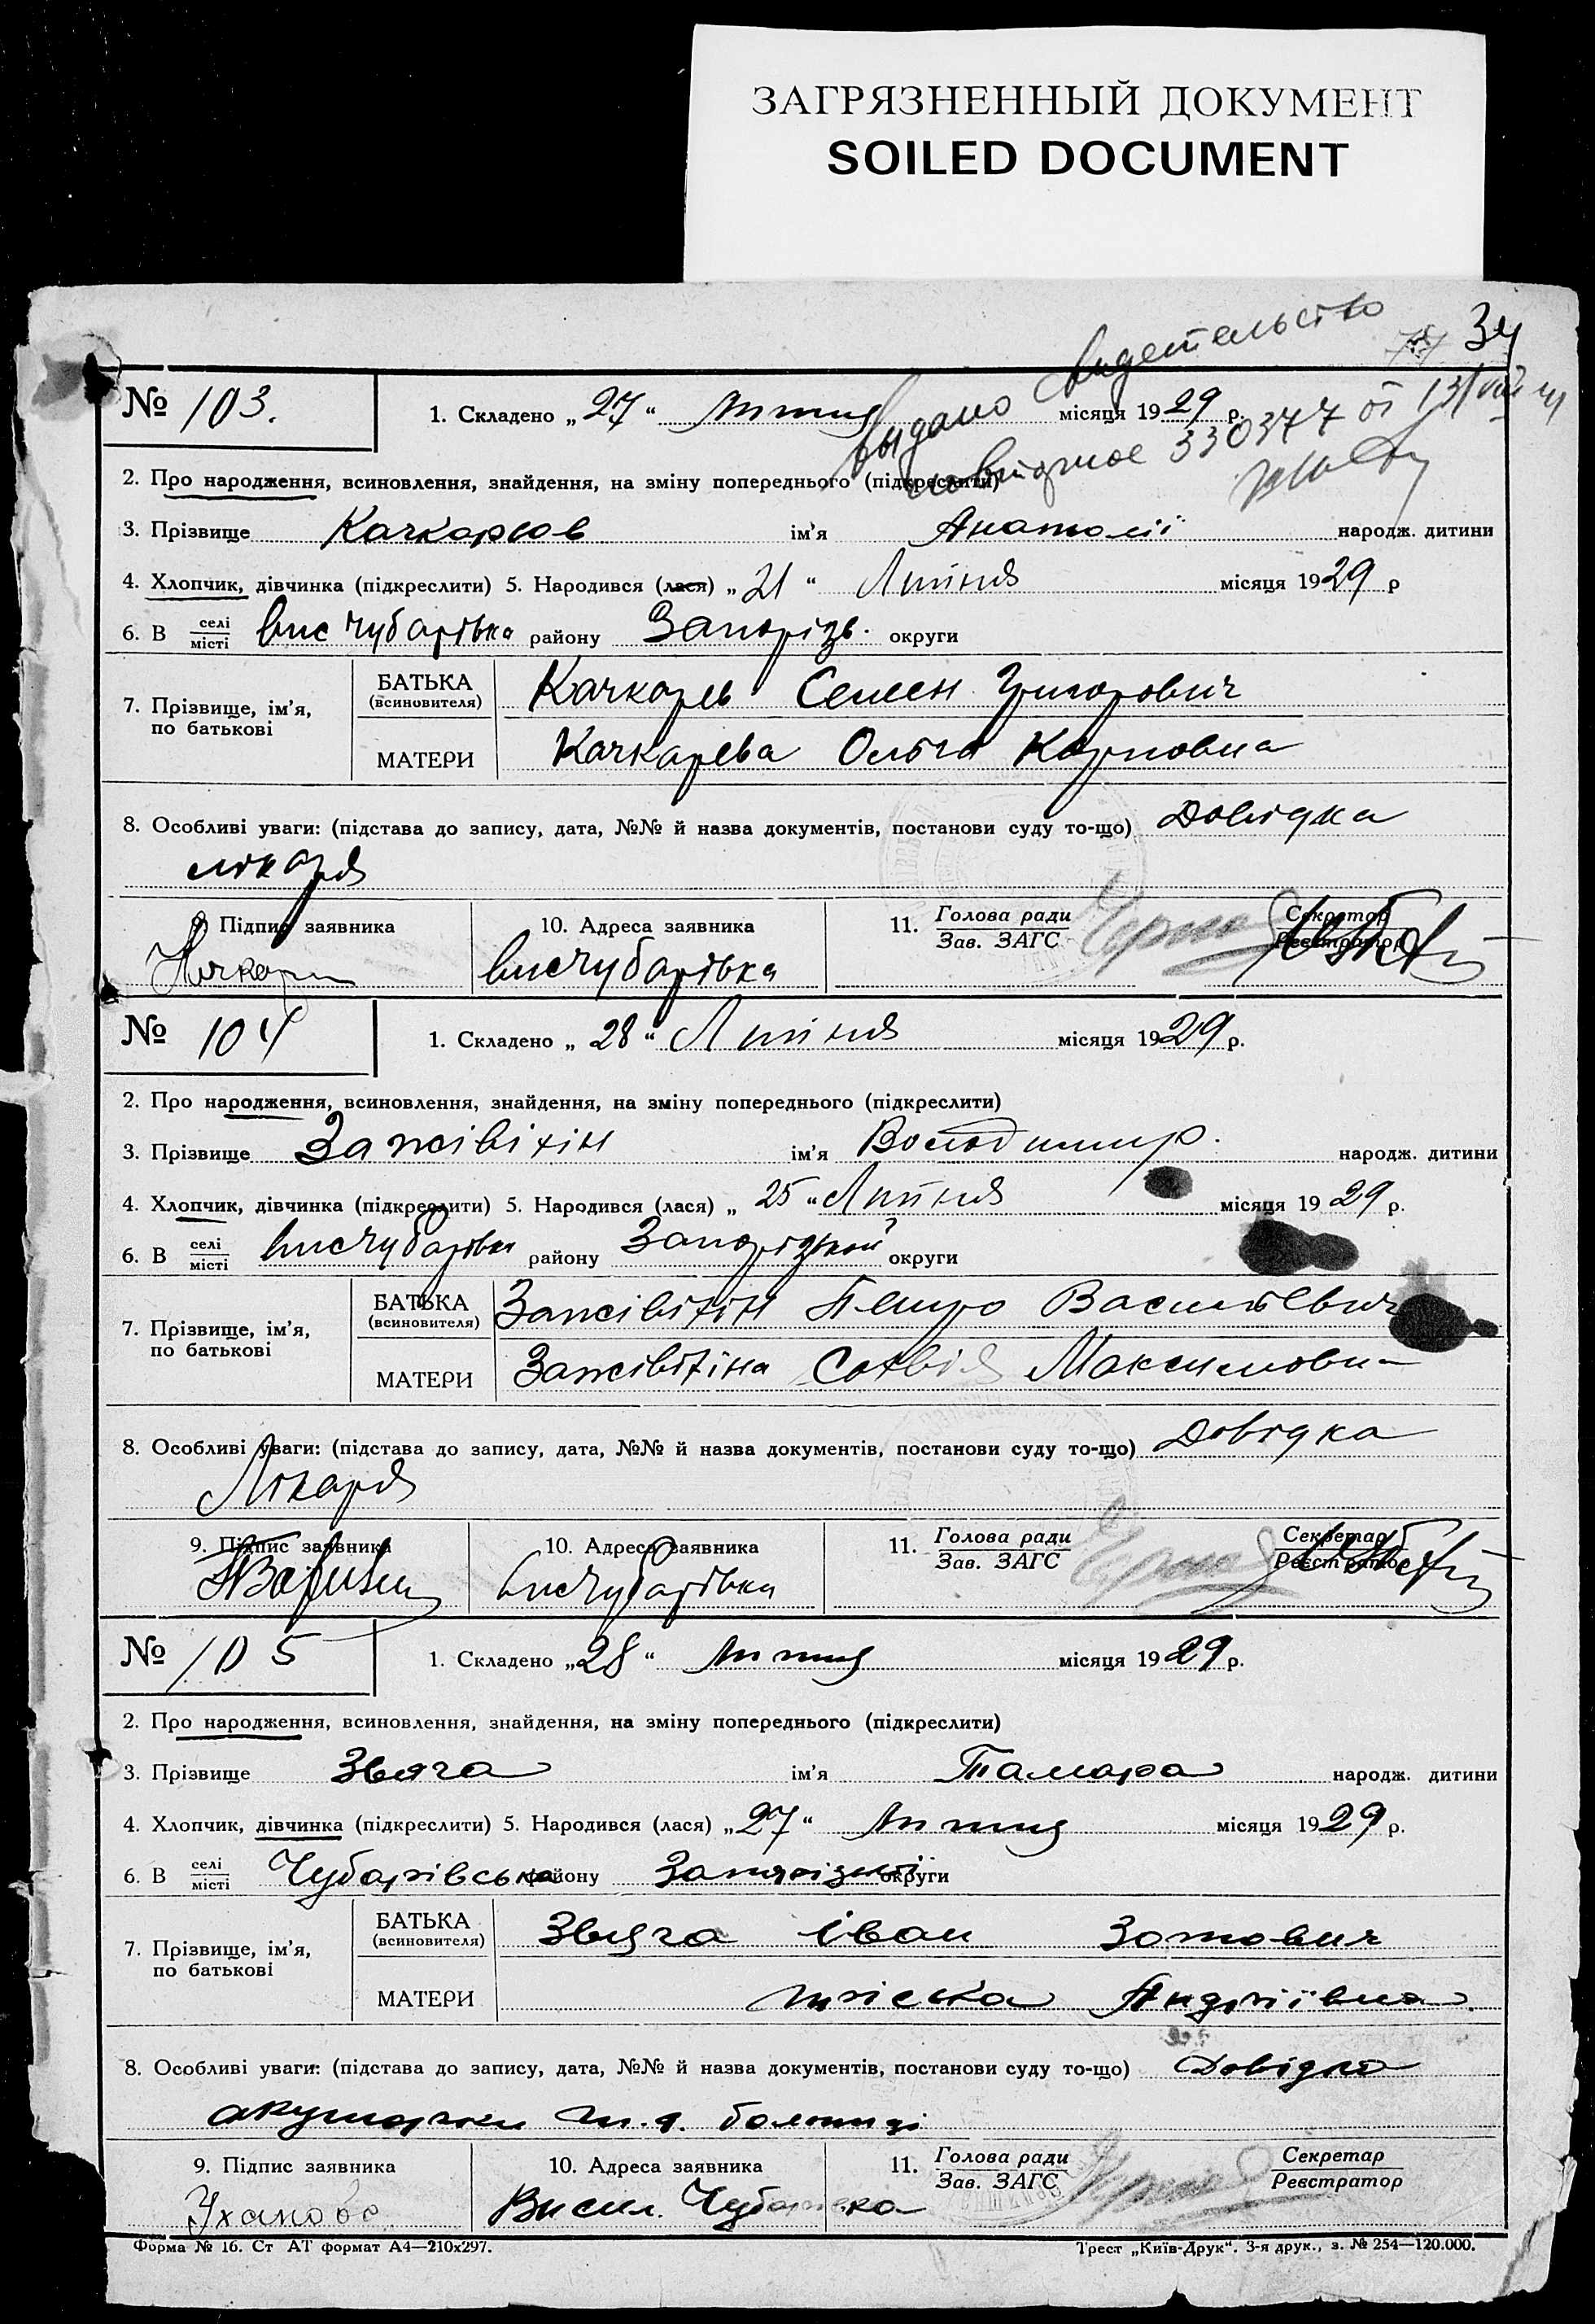 ЗАГРЯЗНЕННЫЙ ДОКУМЕНТ
SOILED DOCUMENT
34
Выдано свидетельство
повторное 330377 от 13/VIII
№ 103.
1. Складено „27“ Липня місяця 1929 р.
2. Про народження, всиновлення, знайдення, на зміну попереднього (підкреслити)
3. Прізвище Качкарьов ім'я Анатолії народж. дитини
4. Хлопчик, дівчинка (підкреслити) 5. Народився (лася) „21“ Липня місяця 1929 р
6. В селі місті Висчубарівка району Запорізь. округи
7. Прізвище, ім'я, по батькові
БАТЬКА (всиновителя) Качкарьв Семен Григорович
МАТЕРИ Качкарева Ольга Карповна
8. Особливі уваги: (підстава до запису, дата, №№ й назва документів, постанови суду то-що) Довідка
лікаря
9. Підпис заявника 10. Адреса заявника 11. Голова ради Зав. ЗАГС Секретар Реєстратор
Висчубарівка
№ 104
1. Складено „28“ Липня місяця 1929 р.
2. Про народження, всиновлення, знайдення, на зміну попереднього (підкреслити)
3. Прізвище Зажівіхін ім'я Володимир. народж. дитини
4. Хлопчик, дівчинка (підкреслити) 5. Народився (лася) „25“ Липня місяця 1929 р.
6. В селі місті Висчубарівки району Запорізької округи
7. Прізвище, ім'я, по батькові
БАТЬКА (всиновителя) Зажівіхін Петро Васильевич
МАТЕРИ Зажівіхіна Максимовна
8. Особливі уваги: (підстава до запису, дата, №№ й назва документів, постанови суду то-що) Довідка
Лікаря
9. Підпис заявника 10. Адреса заявника 11. Голова ради Зав. ЗАГС Секретар Реєстратор
Висчубарівка
№ 105
1. Складено „28“ Липня місяця 1929 р.
2. Про народження, всиновлення, знайдення, на зміну попереднього (підкреслити)
3. Прізвище Звяга ім'я Тамара народж. дитини
4. Хлопчик, дівчинка (підкреслити) 5. Народився (лася) „27“ Липня місяця 1929 р.
6. В селі місті Чубарівська району Запорізької округи
7. Прізвище, ім'я, по батькові
БАТЬКА (всиновителя) Звяга Іван Зотович
МАТЕРИ Андріївна
8. Особливі уваги: (підстава до запису, дата, №№ й назва документів, постанови суду то-що) Довідка
акушерки больниці
9. Підпис заявника 10. Адреса заявника 11. Голова ради Зав. ЗАГС Секретар Реєстратор
Уханова Висил. Чубарівка
Форма № 16. Ст АТ формат А4—210x297.
Трест „Київ-Друк“. 3-я друк., з. № 254—120.000.